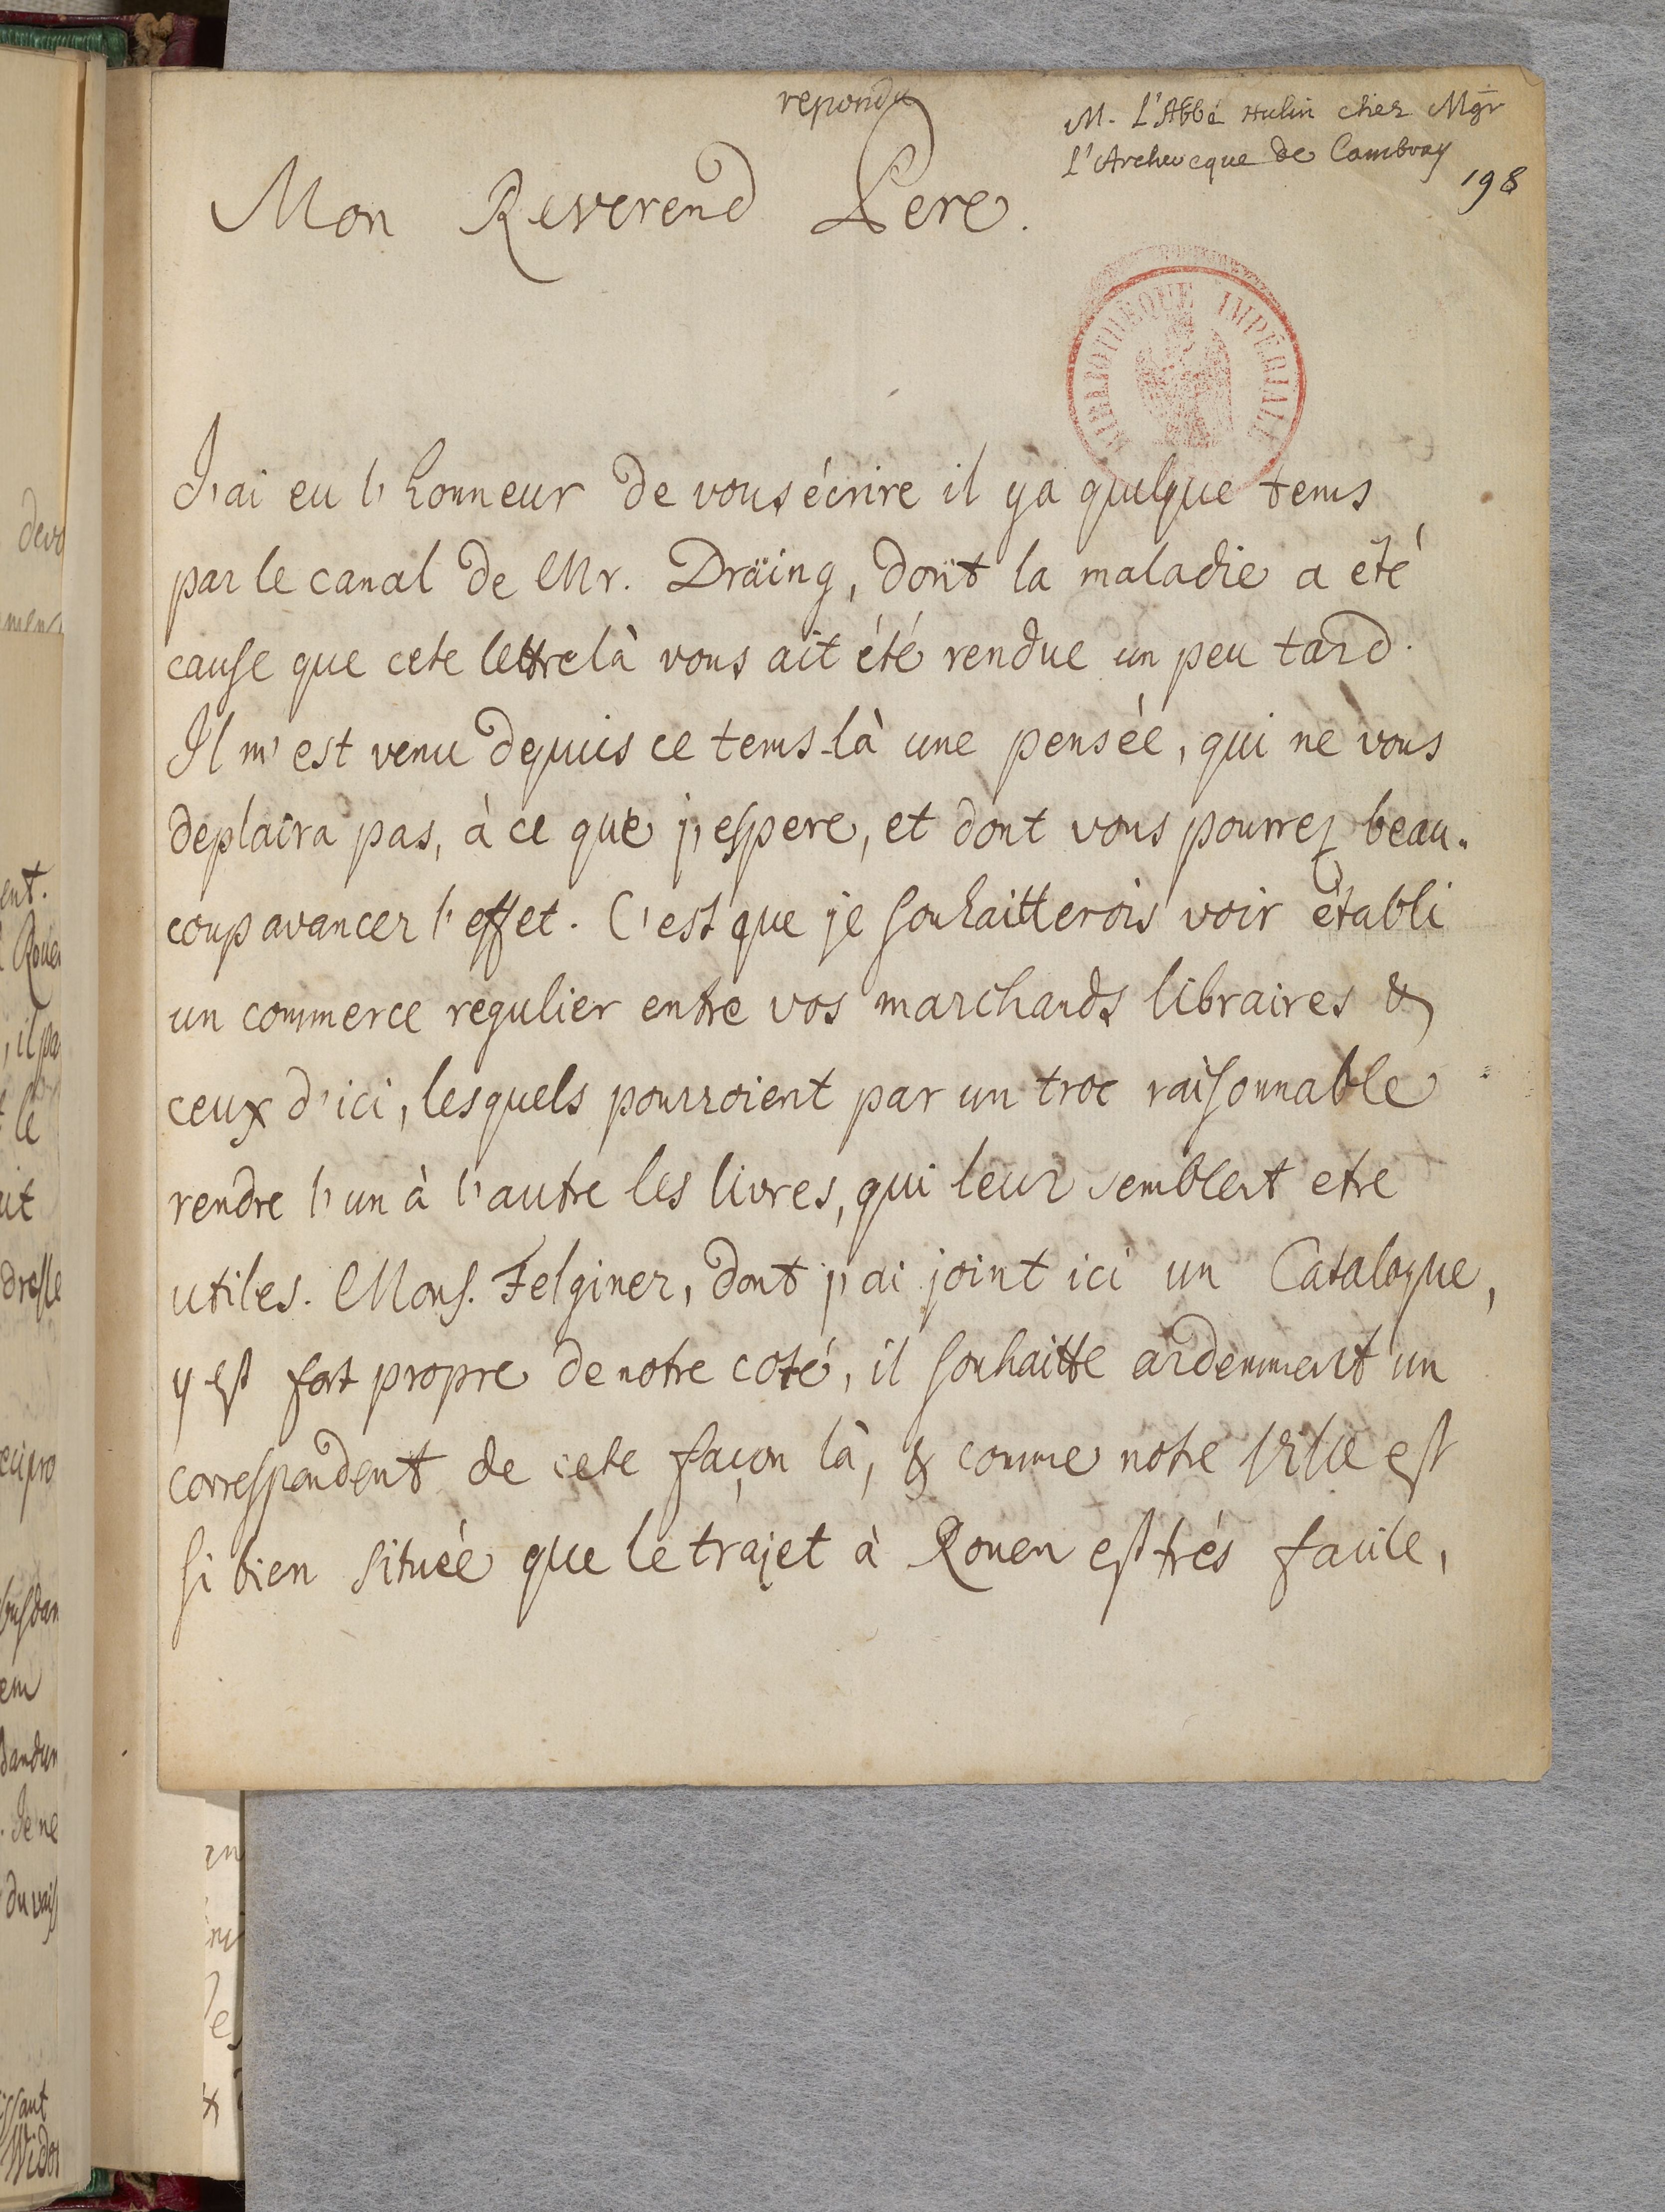 repondu
M. L'Abbé Hulin chez Mgr
L'Archeveque de Cambray
198
Mon Reverend Pere.
BIBLIOTHEQUE IMPÉRIALE
J'ai eu l'honneur de vous écrire il ya quelque tems
par le canal de Mr. Dräing, dont la maladie a été
cause que cete lettre là vous ait été rendue un peu tard.
Il m'est venu depuis ce tems-là une pensée, qui ne vous
deplaira pas, à ce que j'espere, et dont vous pourrez beau-
coup avancer l'effet. C'est que je souhaitterois voir établi
un commerce regulier entre vos marchands libraires &
ceux d'ici, lesquels pourroient par un troc raisonnable
rendre l'un à l'autre les livres, qui leur semblent etre
utiles. Mons. Felginer, dont j'ai joint ici un Catalogue,
y est fort propre de notre coté, il souhaitte ardemment un
correspondent de cete façon là, & comme notre Ville est
si bien située que le trajet à Rouen est trés facile,
devo
ent.
il pa
le
dresse
recipro
Je ne
du vais